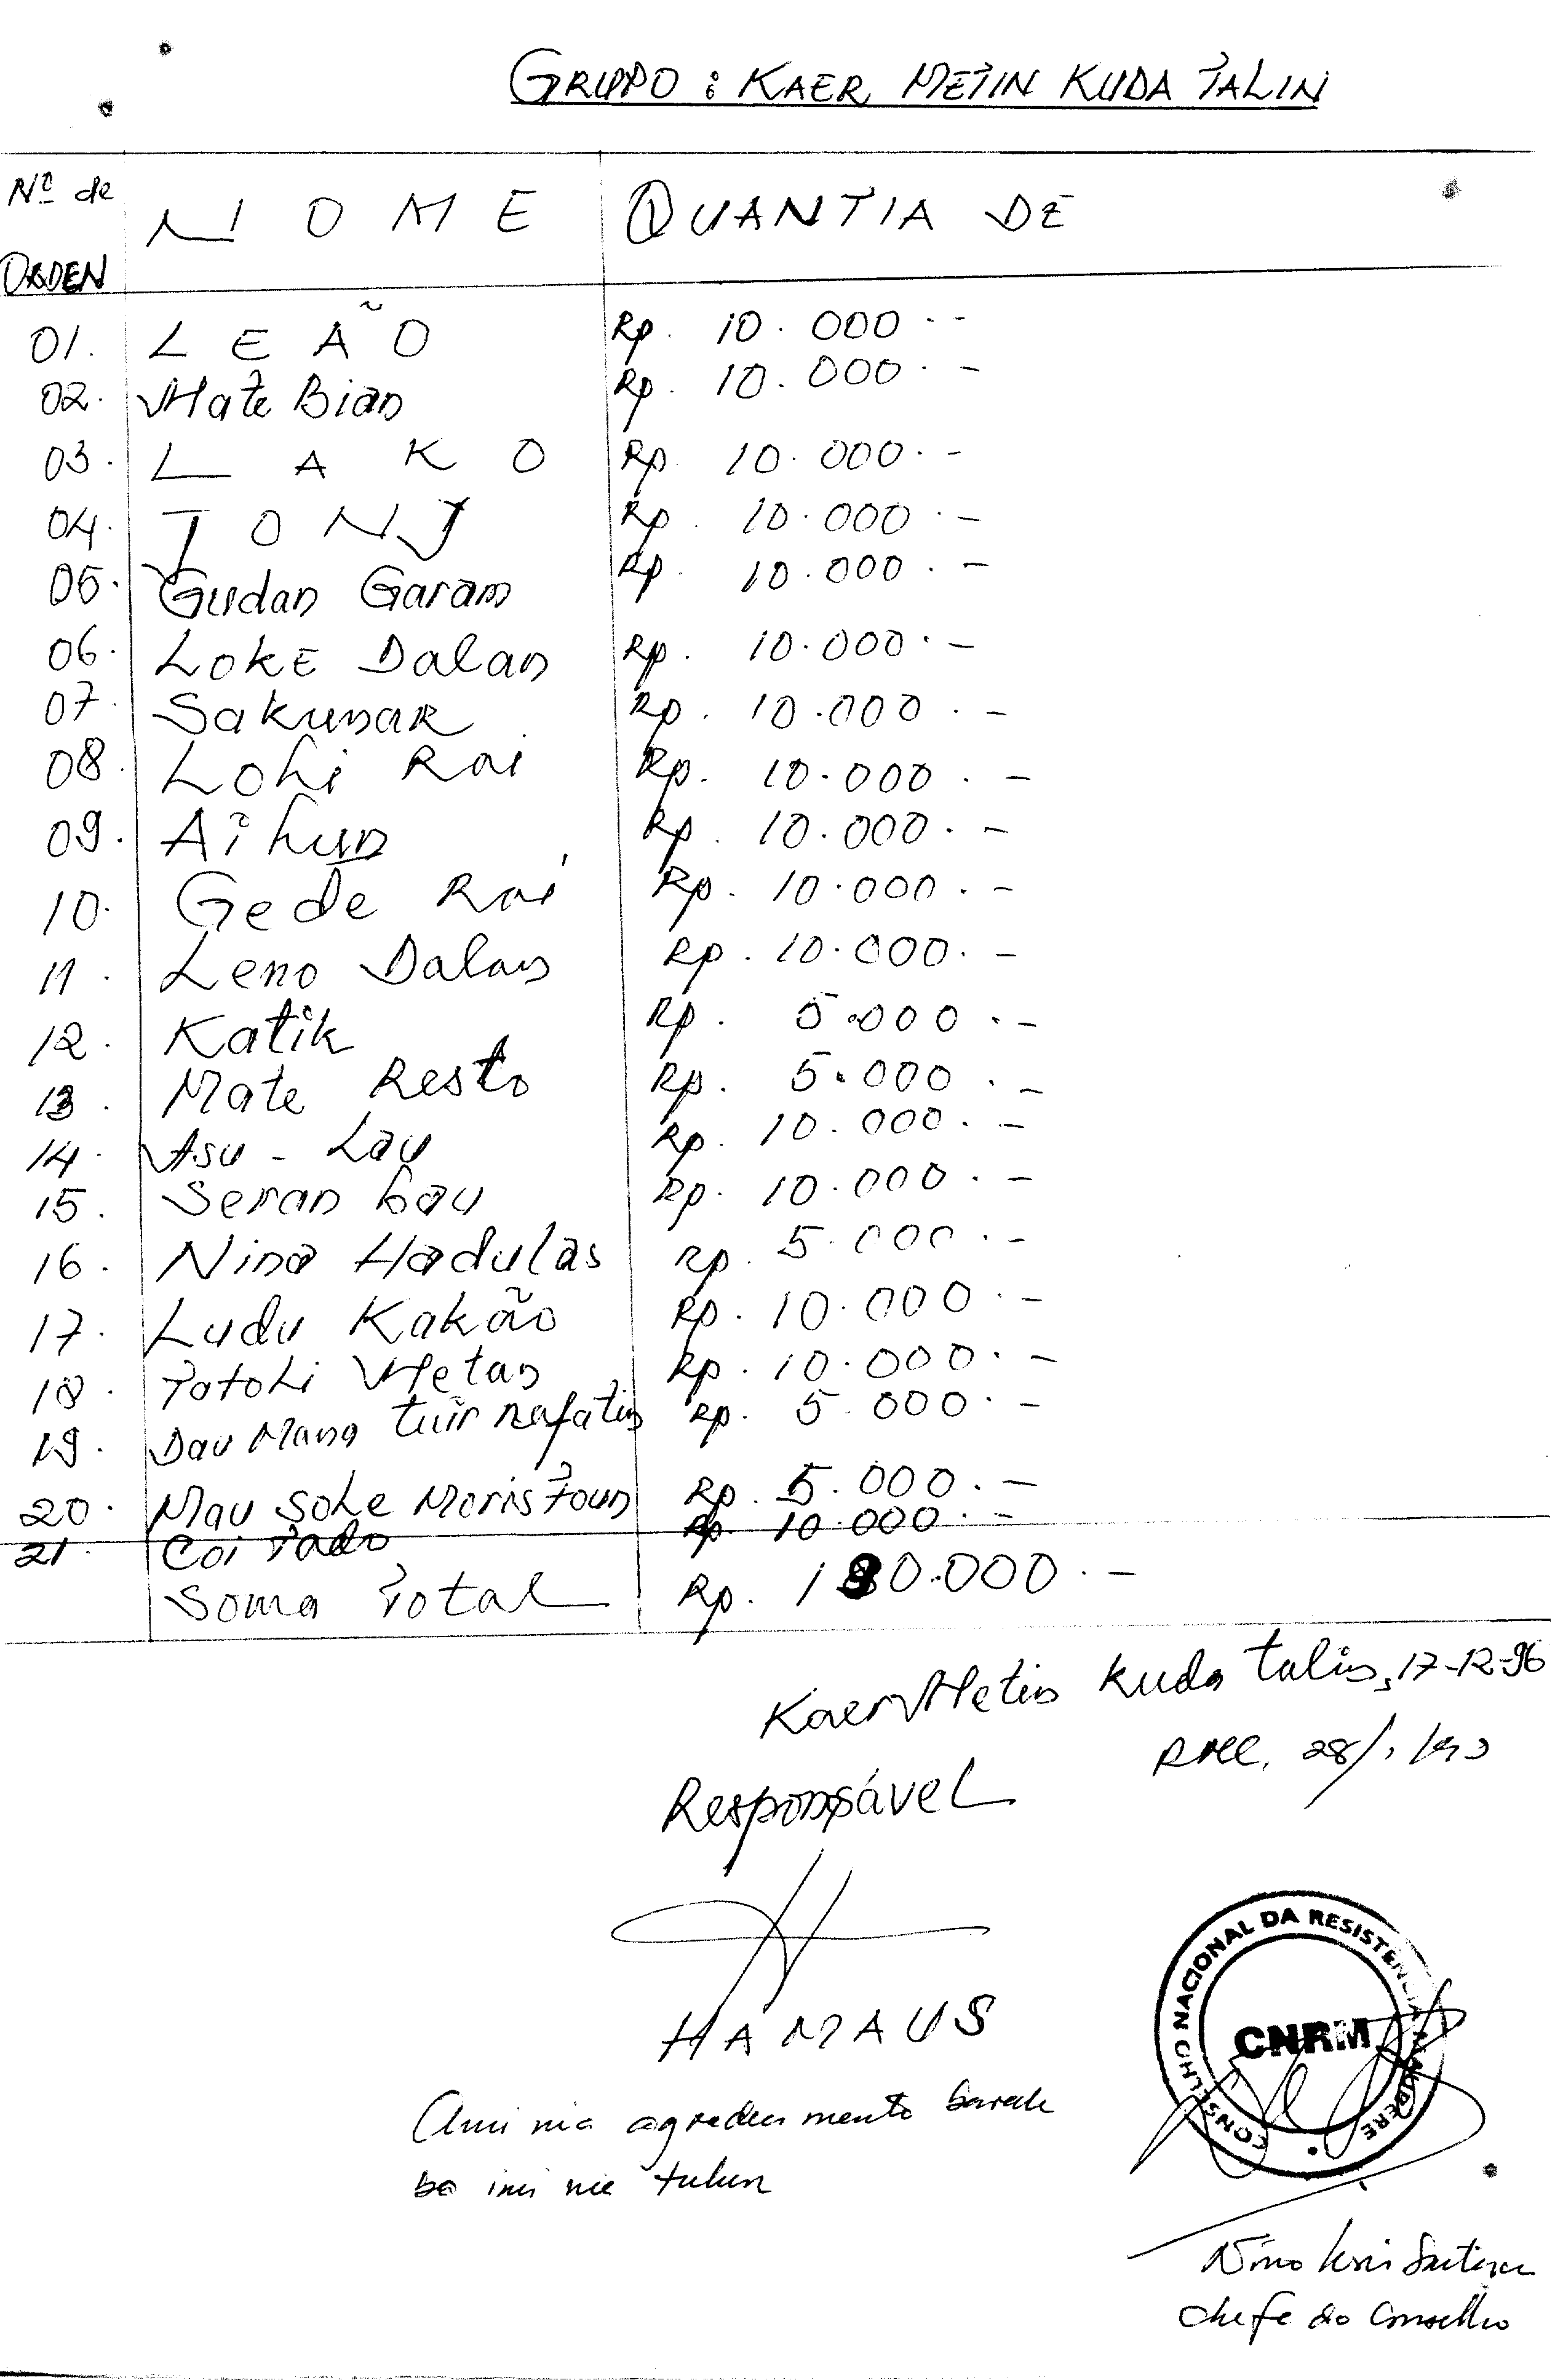 GRUPO : KAER METIN KUDA TALIN
Nº de ORDEN N O M E QUANTIA DE
01. L E Ã O Rp. 10.000.-
02. Mate Bian Rp. 10.000.-
03. L A K O Rp. 10.000.-
04. T O N Y Rp. 10.000.-
05. Gudan Garam Rp. 10.000.-
06. LOKE Dalan Rp. 10.000.-
07. Sakunar Rp. 10.000.-
08. Lohi Rai Rp. 10.000.-
09. Ai hun Rp. 10.000.-
10. Gede Rai Rp. 10.000.-
11. Leno Dalan Rp. 10.000.-
12. Katik Rp. 5.000.-
13. Mate Resto Rp. 5.000.-
14. Asu - Lau Rp. 10.000.-
15. Seran bau Rp. 10.000.-
16. Nina Hadulas Rp. 5.000.-
17. Ludu Kakão Rp. 10.000.-
18. Tatoli Metan Rp. 10.000.-
19. Dau Mana tuir nafatin Rp. 5.000.-
20. Mau Soke Moris Foun Rp. 5.000.-
21. Coi Tado Rp. 10.000.-
Soma Total Rp. 190.000.-
Kaer Metin Kuda talin, 17-12-96
28/
Responsável
HAMAUS
CONSELHO NACIONAL DA RESISTÊNCIA MAUBERE
CNRM
Ami nia agradecimento barak
ba imi nia tulun
Nino
Chefe do Conselho